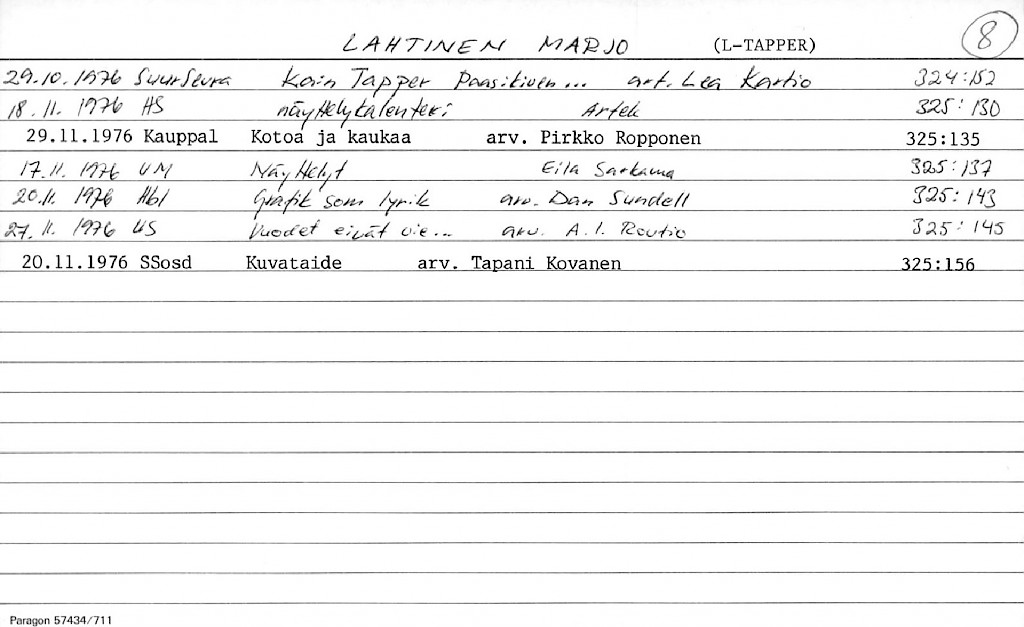 LAHTINEN MARJO (L-TAPPER) 8
29.10.1976 SuurSeura Kain Tapper Paasikiven... art. Lea Kartio 324:152
18.11. 1976 HS näyttelykalenteri Artek 325:130
29.11.1976 Kauppal Kotoa ja kaukaa arv. Pirkko Ropponen 325:135
17.11. 1976 UM Näyttelyt Eila Sarkama 325:137
20.11. 1976 Hbl Grafik som lyrik arv. Dan Sundell 325:143
27.11. 1976 US Vuodet eivät vie... arv. A.I. Routio 325:145
20.11.1976 SSosd Kuvataide arv. Tapani Kovanen 325:156
Paragon 57434/711